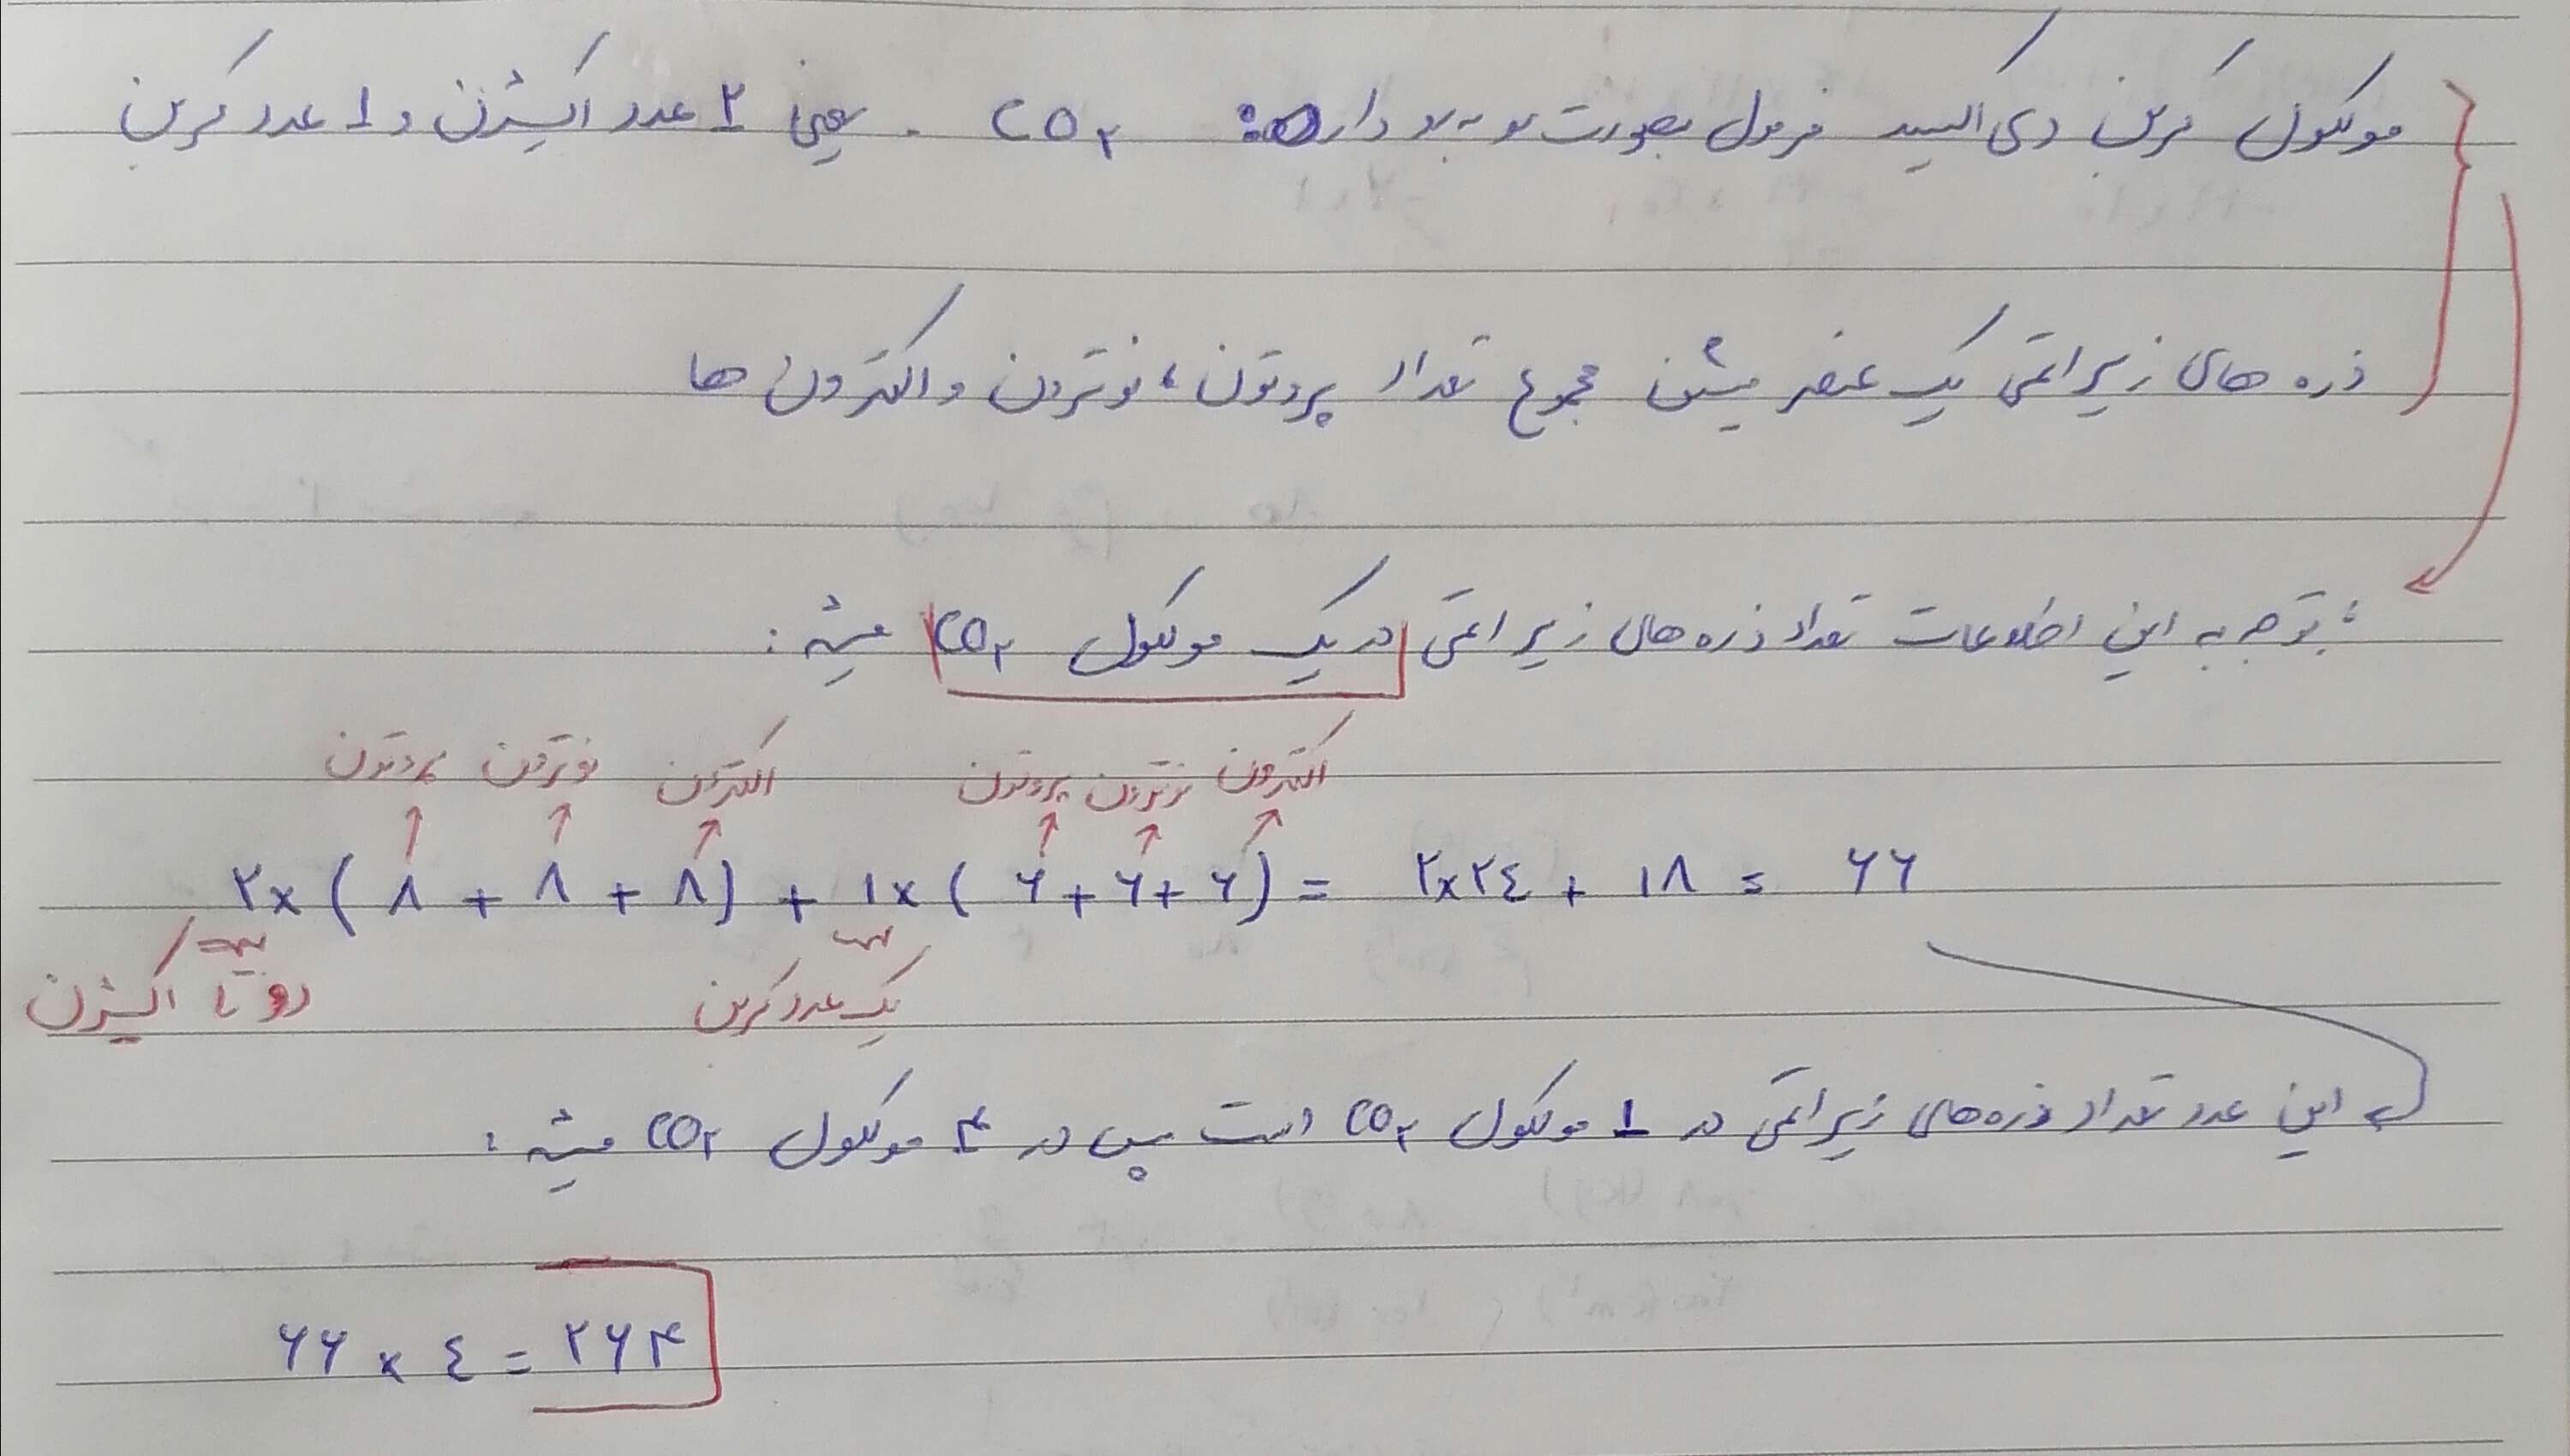 مولکول کربن دی اکسید فرمول بصورت رو به رو داره: CO۲ . یعنی ۲ عدد اکسیژن و ۱ عدد کربن
ذره های زیر اتمی یک عنصر میشن مجموع تعداد پروتون، نوترون و الکترون ها
با توجه به این اطلاعات تعداد ذره های زیر اتمی در یک مولکول CO۲ میشه:
پروتون نوترون الکترون پروتون نوترون الکترون
۲x(۸+۸+۸) + ۱x(۶+۶+۶) = ۲x۲٤ + ۱۸ = ۶۶
دو تا اکسیژن یک عدد کربن
این عدد تعداد ذره های زیر اتمی در ۱ مولکول CO۲ است پس در ۴ مولکول CO۲ میشه:
۶۶ x ٤ = ۲۶۴